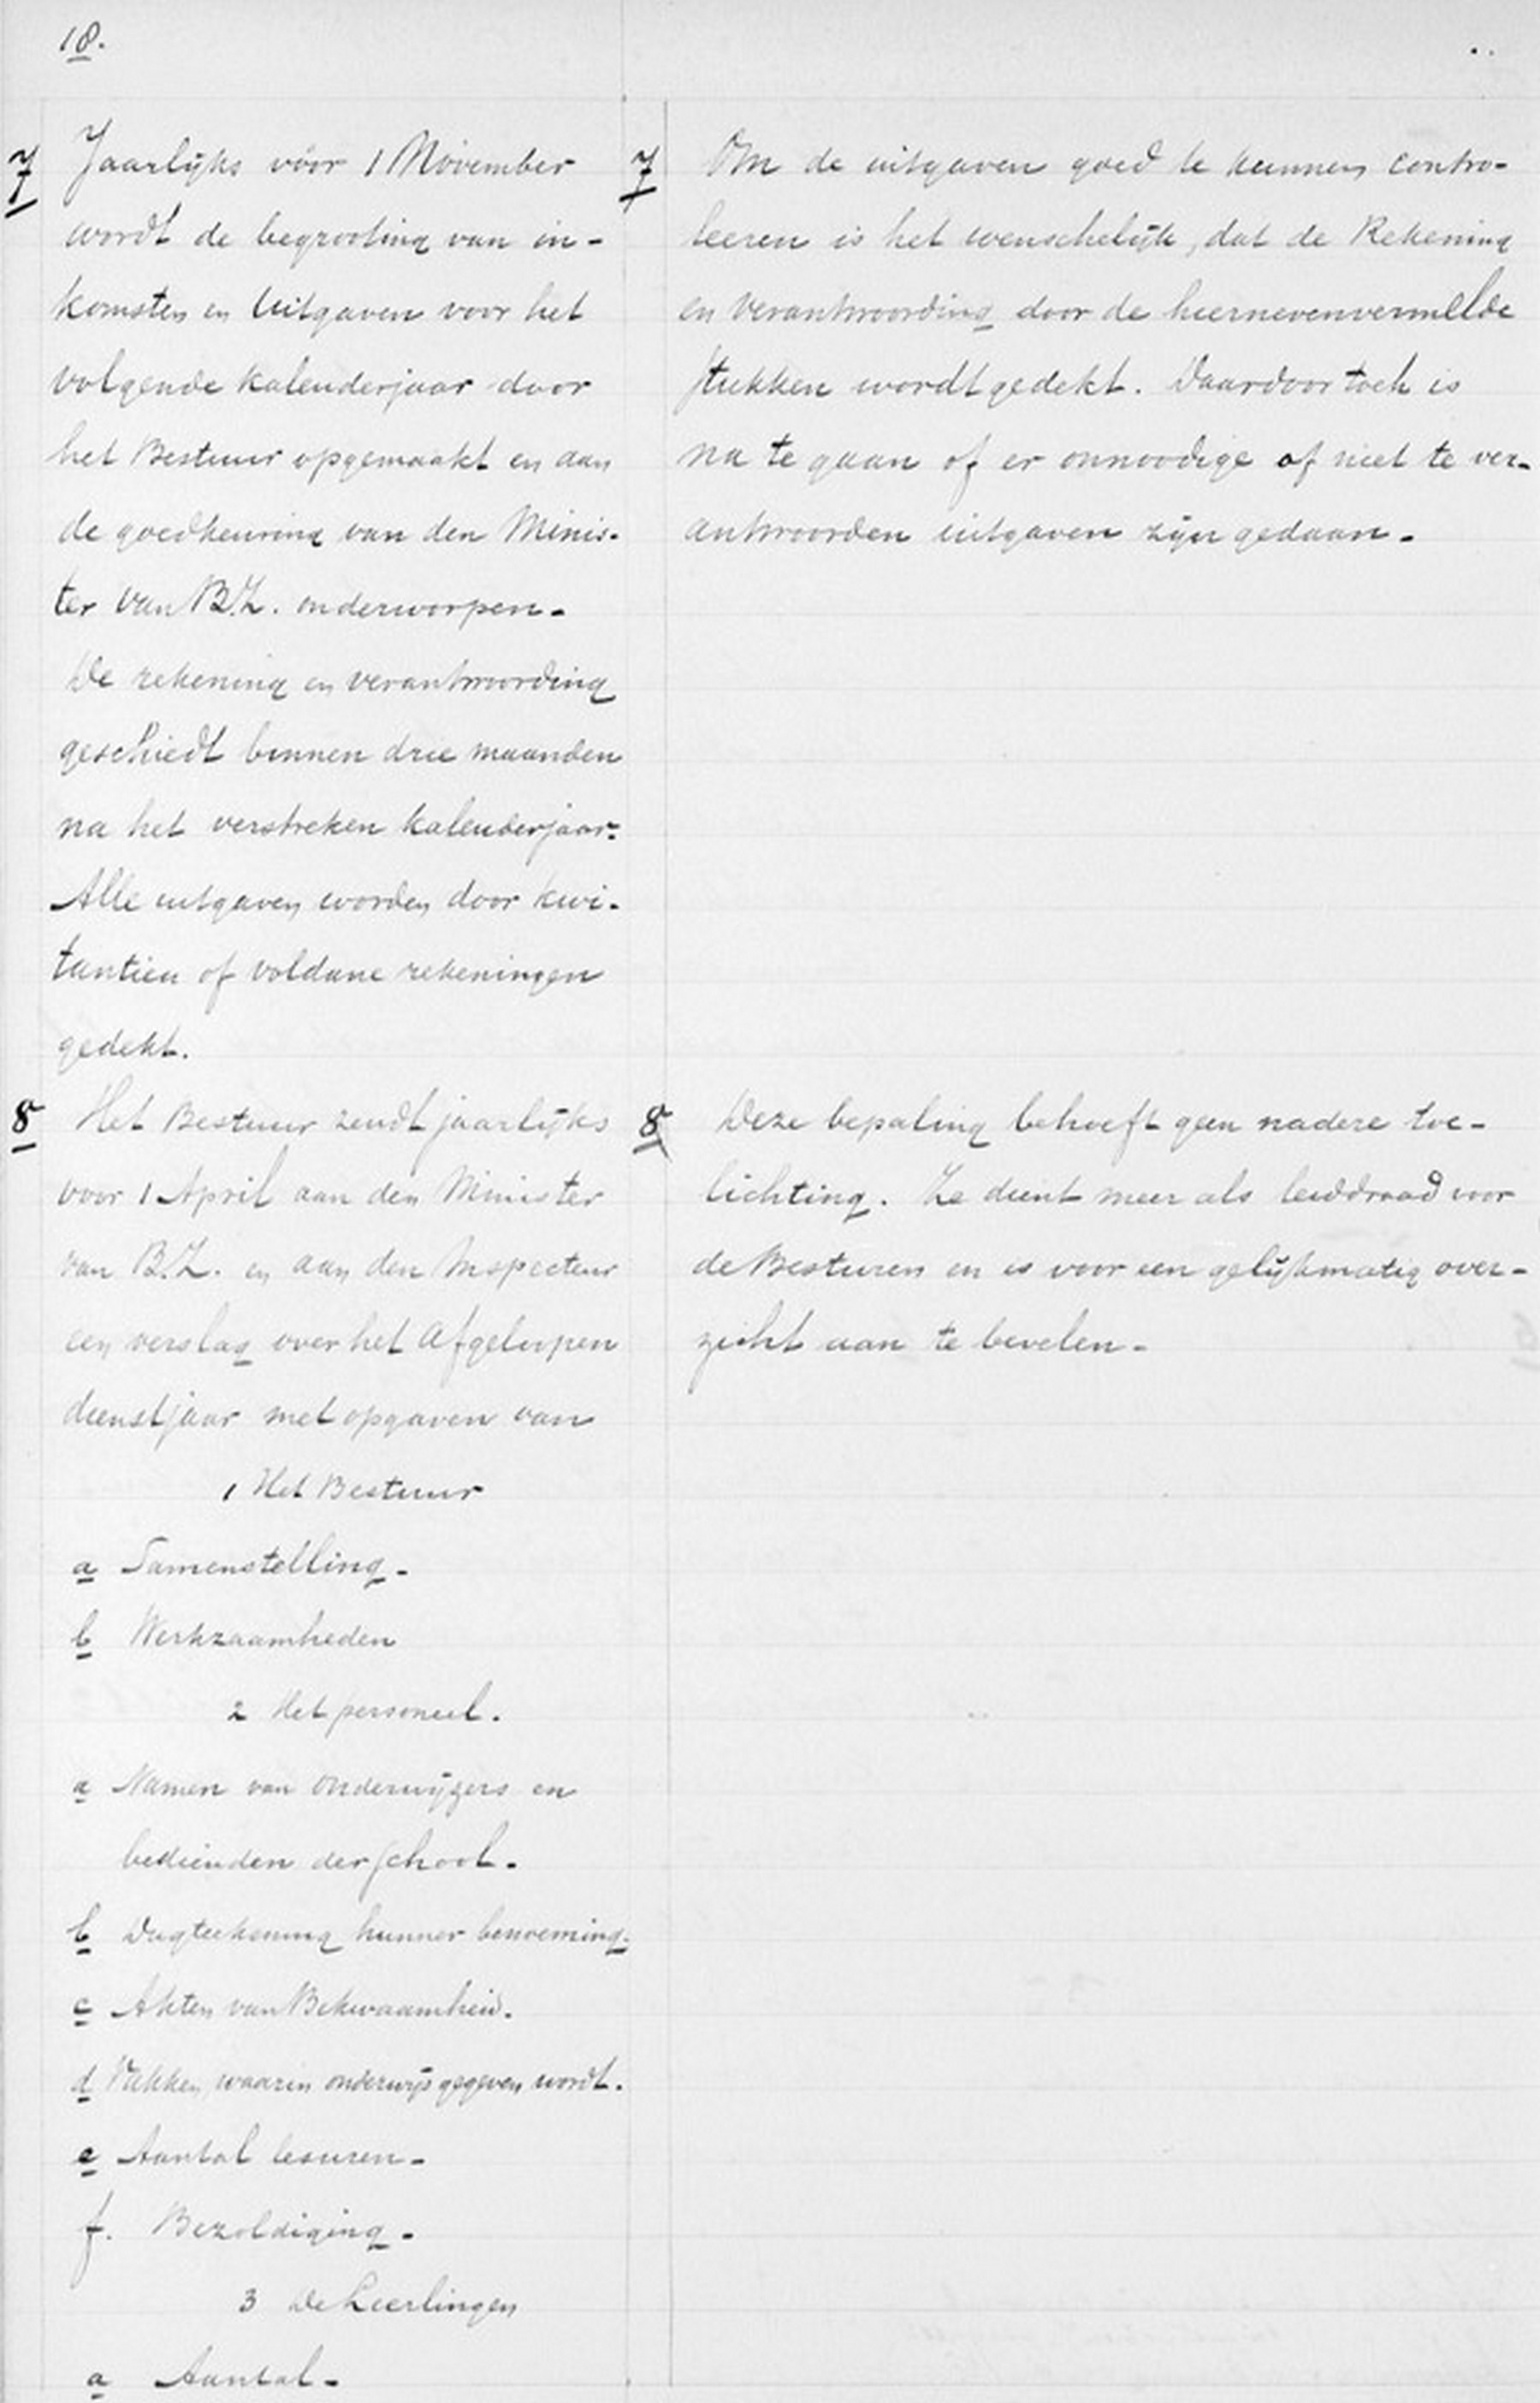 18.
7 Jaarlijks vóor 1 November
wordt de begrooting van in-
komsten en Uitgaven voor het
volgende kalenderjaar door
het Bestuur opgemaakt en aan
de goedkeuring van den Minis-
ter van B.Z. onderworpen.
De rekening en verantwoording
geschiedt binnen drie maanden
na het verstreken kalenderjaar.
Alle uitgaven worden door kwi-
tantien of voldane rekeningen
gedekt.
8 Het Bestuur zendt jaarlijks
voor 1 April aan den Minister
van B.Z. en aan den Inspecteur
een verslag over het afgeloopen
dienstjaar met opgaven van
1 Het Bestuur
a Samenstelling.
b Werkzaamheden
2 Het personeel.
a Namen van onderwijzers en
bedienden der school.
b Dagteekening hunner benoeming.
c Akten van Bekwaamheid.
d Vakken, waarin onderwijs gegeven wordt.
e Aantal lesuren.
f. Bezoldiging.
3 De Leerlingen
a Aantal.
7 Om de uitgaven goed te kunnen contro-
leeren is het wenschelijk, dat de Rekening
en Verantwoording door de hiernevenvermelde
stukken wordt gedekt. Daardoor toch is
na te gaan of er onnoodige of niet te ver-
antwoorden uitgaven zijn gedaan.
8 Deze bepaling behoeft geen nadere toe-
lichting. Ze dient meer als leiddraad voor
de Besturen en is voor een gelijkmatig over-
zicht aan te bevelen.